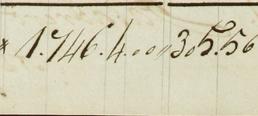 * 1.746.4.000 305.56